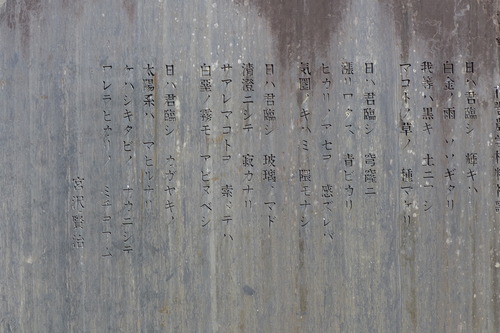 日ハ君臨シ 輝キハ
白金ノ雨 ソソギタリ
我等ハ黒キ 土ニフシ
マコトノ草ノ 種マケリ
日ハ君臨シ 穹窿ニ
漲リワタス 青ビカリ
ヒカリノアセヲ 感ズレバ
気圏ノキハミ 隈モナシ
日ハ君臨シ 玻璃ノマド
清澄ニシテ 寂カナリ
サアレマコトヲ 索メテハ
白堊ノ霧モ アビヌベシ
日ハ君臨シ カガヤキノ
太陽系ハ マヒルナリ
ケハシキタビノ ナカニシテ
ワレラヒカリノ ミチヲフム
宮沢賢治